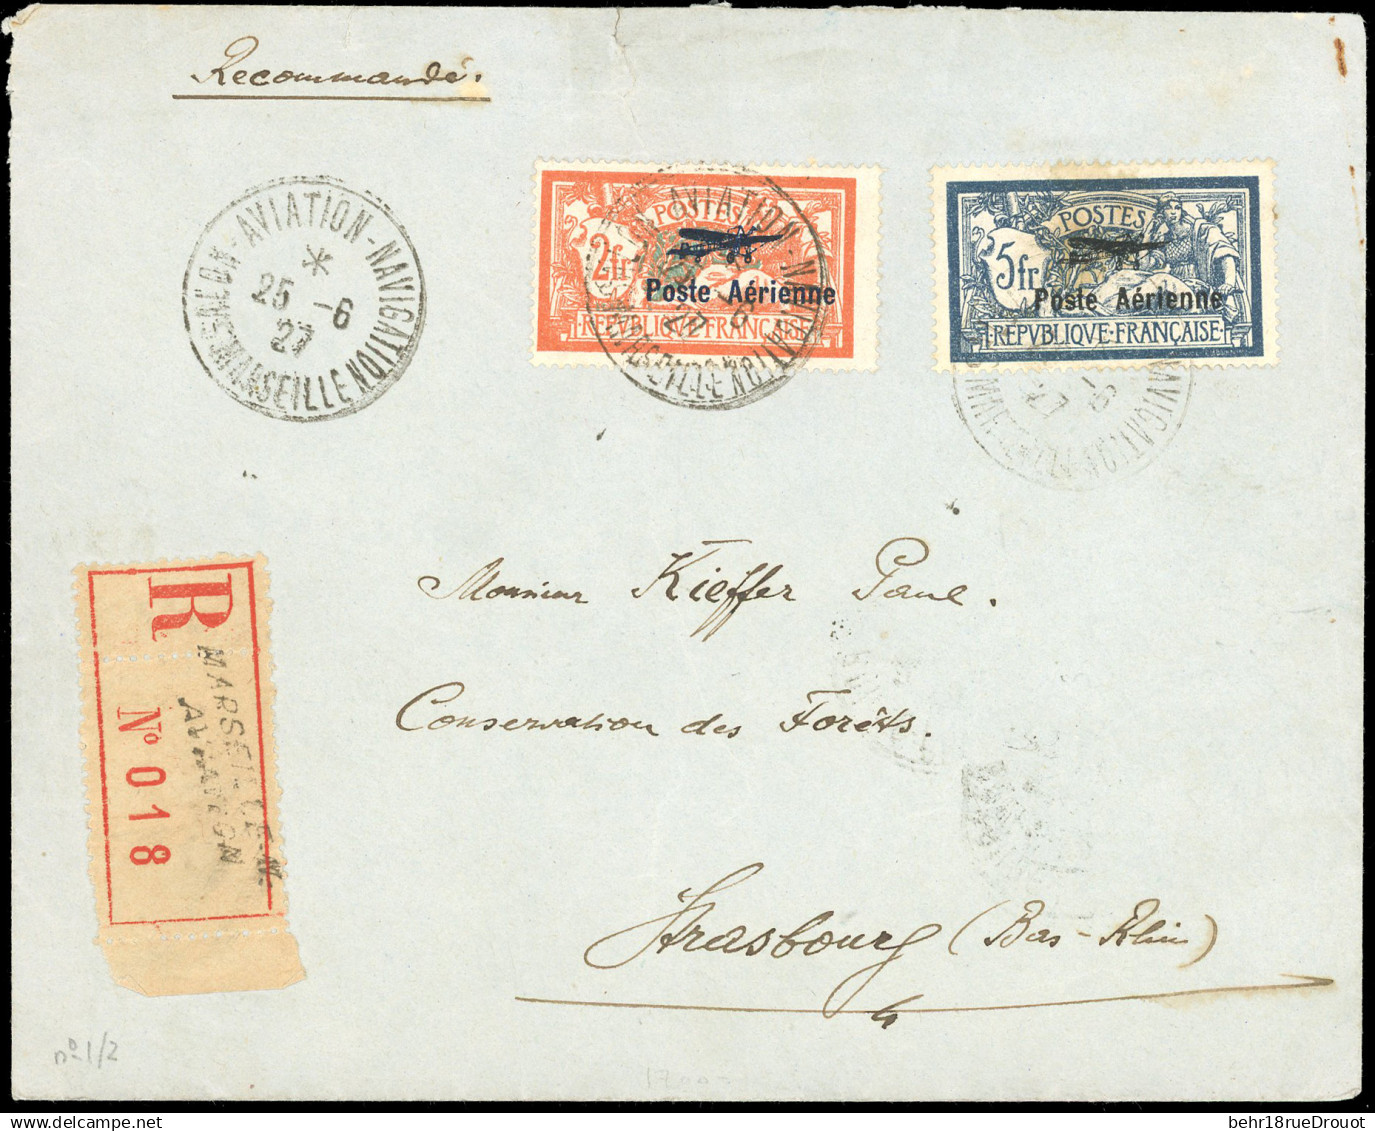 Recommandé.
AVIATION-NAVIGATION
*
25 -6
27
MARSEILLE
POSTES
2fr
Poste Aérienne
REPVBLIQUE·FRANÇAISE
AVIATION
27
-6
POSTES
5fr
Poste Aérienne
REPVBLIQUE·FRANÇAISE
NAVIGATION
27
-6
R
MARSEILLE-N.
AVIATION
N° 018
Monsieur Kieffer Paul.
Conservation des Forêts.
Strasbourg (Bas-Rhin)
n° 1/2
behr18rueDrouot